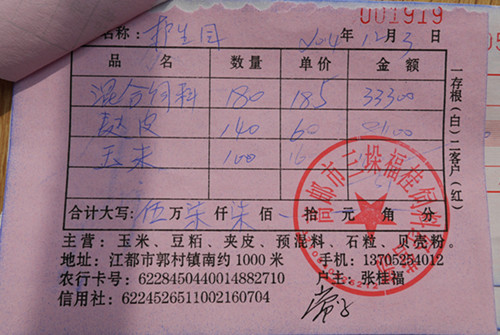 001919
名称：护生园 2014年12月3日
品名 数量 单价 金额
混合饲料 180 185 33300
麸皮 140 60 8400
玉米 100 16
合计大写：伍万柒仟柒佰 拾 元 角 分
一存根（白）二客户（红）
高邮市三垛福桂饲料
主营：玉米、豆粕、夹皮、预混料、石粒、贝壳粉。
地址：江都市郭村镇南约1000米 手机：13705254012
农行卡号：6228450440014882710 户主：张桂福
信用社：6224526511002160704